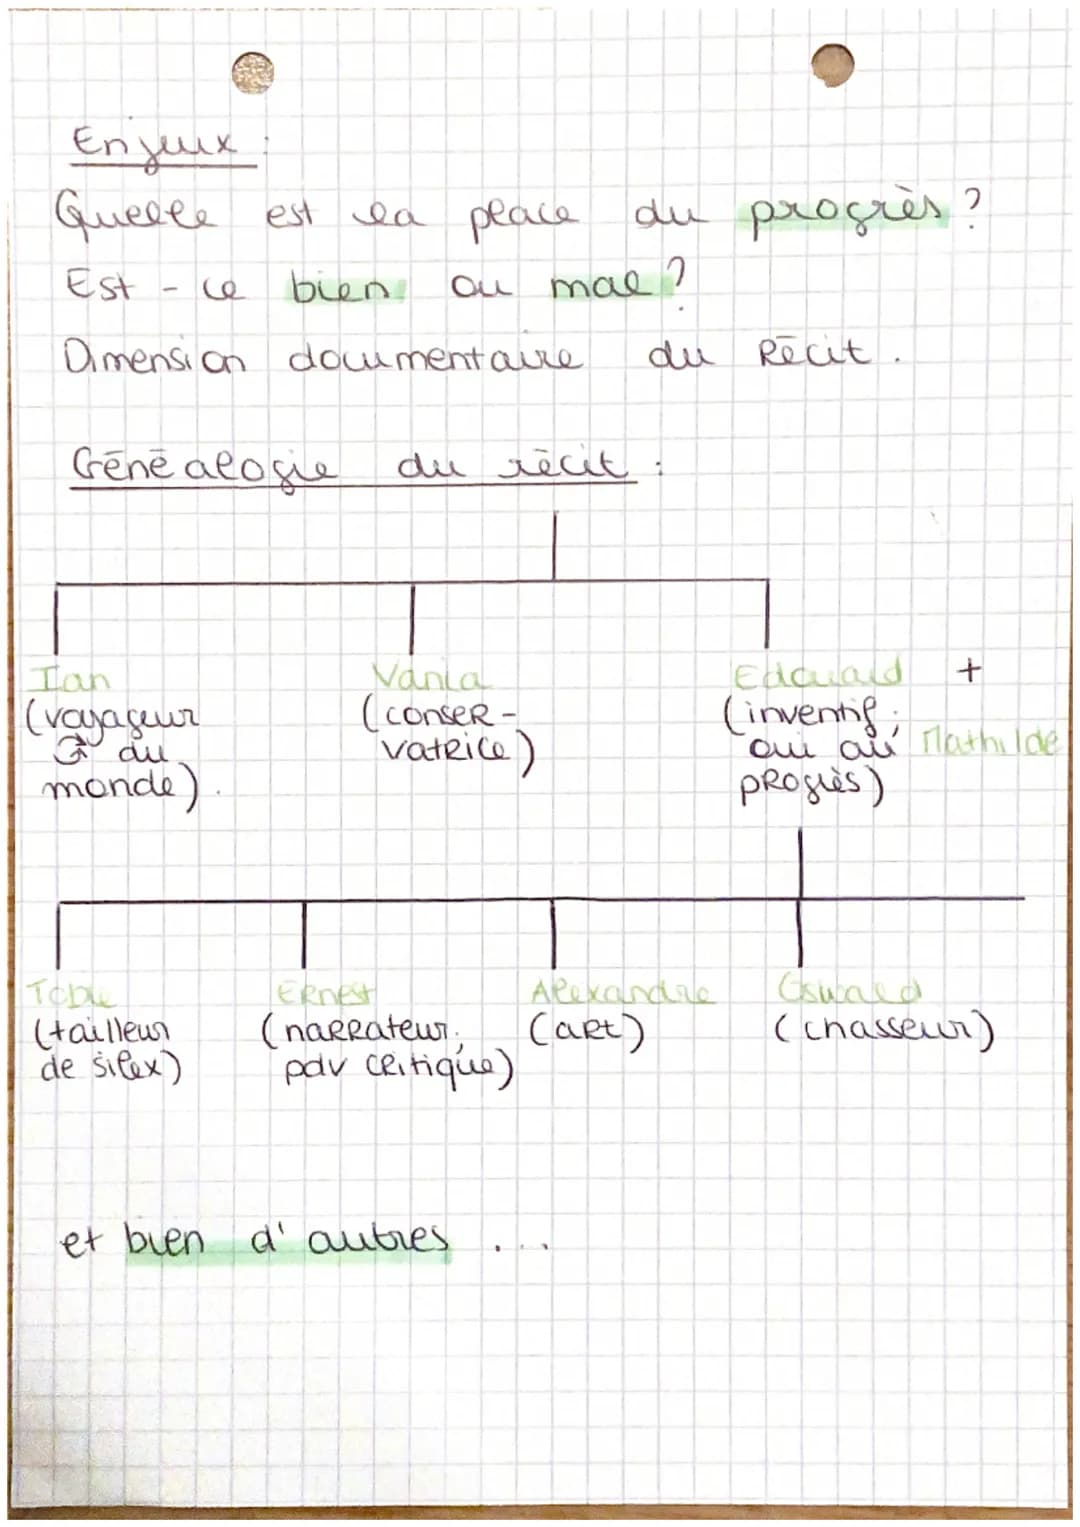 Enjeux :
Quelle est la place du progrès ?
Est-ce bien ou mal ?
Dimension documentaire du Récit.
Généalogie du récit :
Ian Vania Edouard +
(voyageur (conser- (inventif;
du vatrice) oui au Mathilde
monde). progrès)
Tobie Ernest Alexandre Oswald
(tailleur (narrateur; (art) (chasseur)
de silex) pdv critique)
et bien d'autres ...